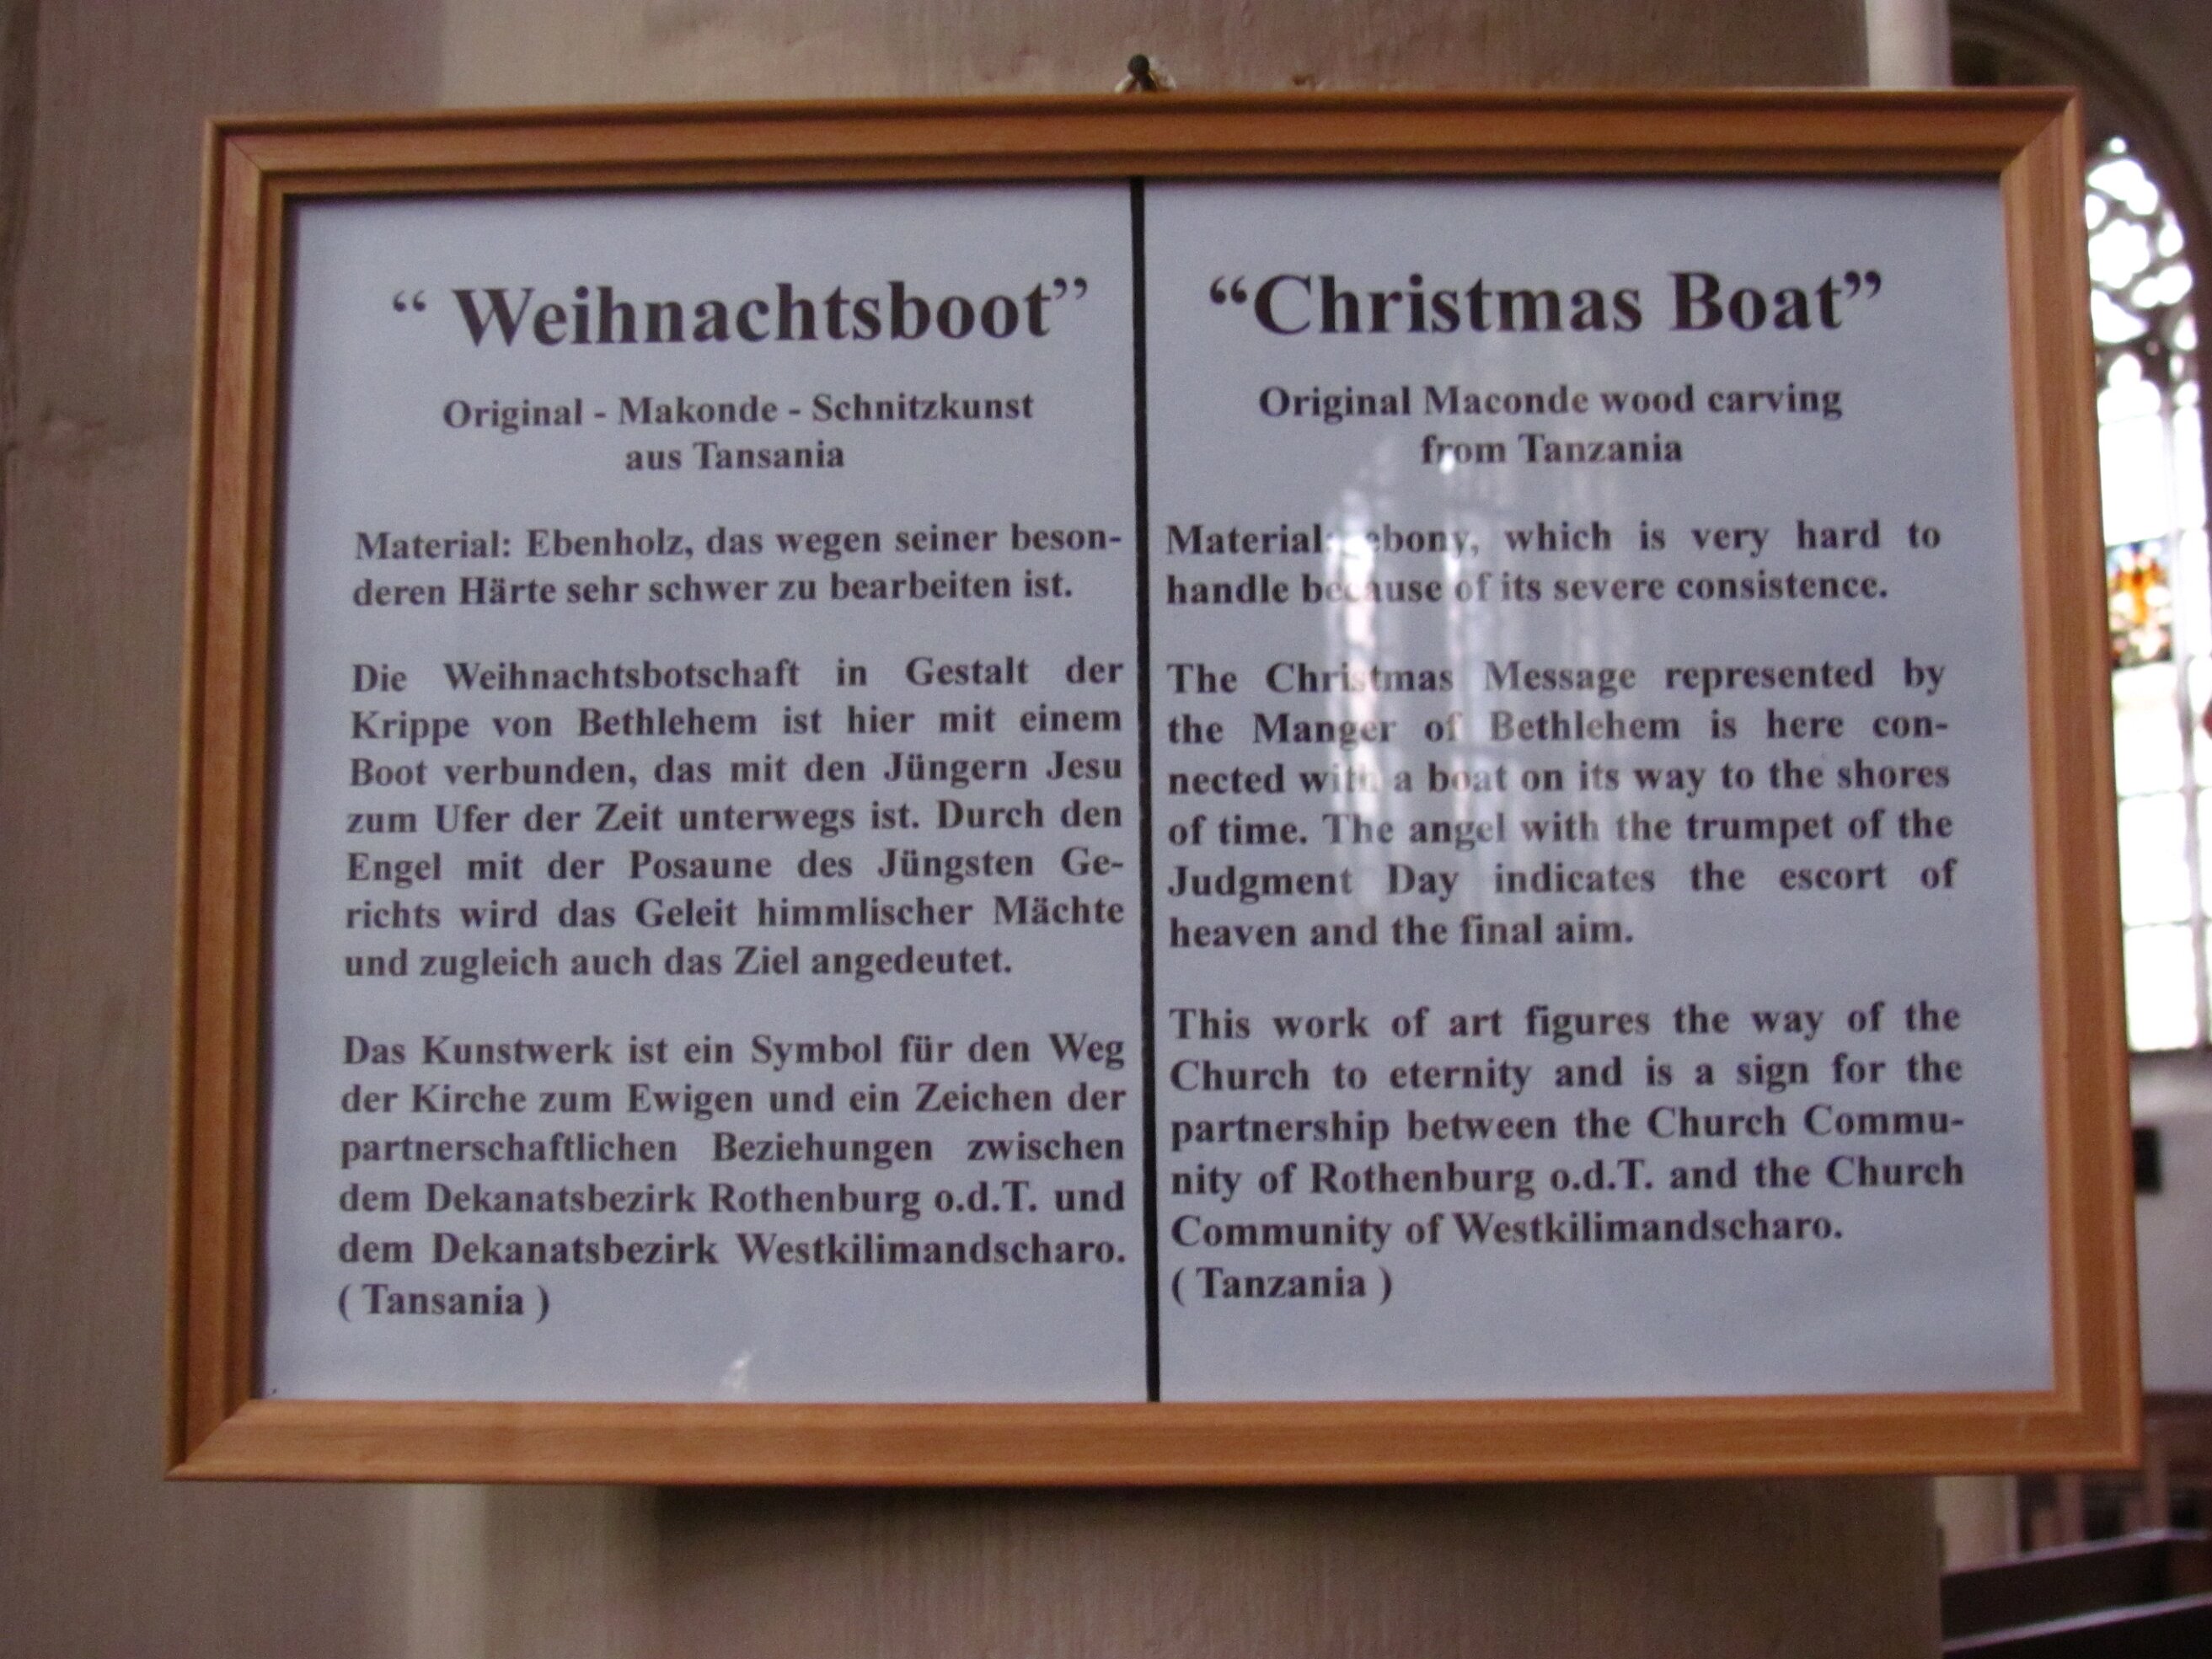 “ Weihnachtsboot”
Original - Makonde - Schnitzkunst
aus Tansania
Material: Ebenholz, das wegen seiner beson-
deren Härte sehr schwer zu bearbeiten ist.
Die Weihnachtsbotschaft in Gestalt der
Krippe von Bethlehem ist hier mit einem
Boot verbunden, das mit den Jüngern Jesu
zum Ufer der Zeit unterwegs ist. Durch den
Engel mit der Posaune des Jüngsten Ge-
richts wird das Geleit himmlischer Mächte
und zugleich auch das Ziel angedeutet.
Das Kunstwerk ist ein Symbol für den Weg
der Kirche zum Ewigen und ein Zeichen der
partnerschaftlichen Beziehungen zwischen
dem Dekanatsbezirk Rothenburg o.d.T. und
dem Dekanatsbezirk Westkilimandscharo.
( Tansania )
“Christmas Boat”
Original Maconde wood carving
from Tanzania
Material: ebony, which is very hard to
handle because of its severe consistence.
The Christmas Message represented by
the Manger of Bethlehem is here con-
nected with a boat on its way to the shores
of time. The angel with the trumpet of the
Judgment Day indicates the escort of
heaven and the final aim.
This work of art figures the way of the
Church to eternity and is a sign for the
partnership between the Church Commu-
nity of Rothenburg o.d.T. and the Church
Community of Westkilimandscharo.
( Tanzania )